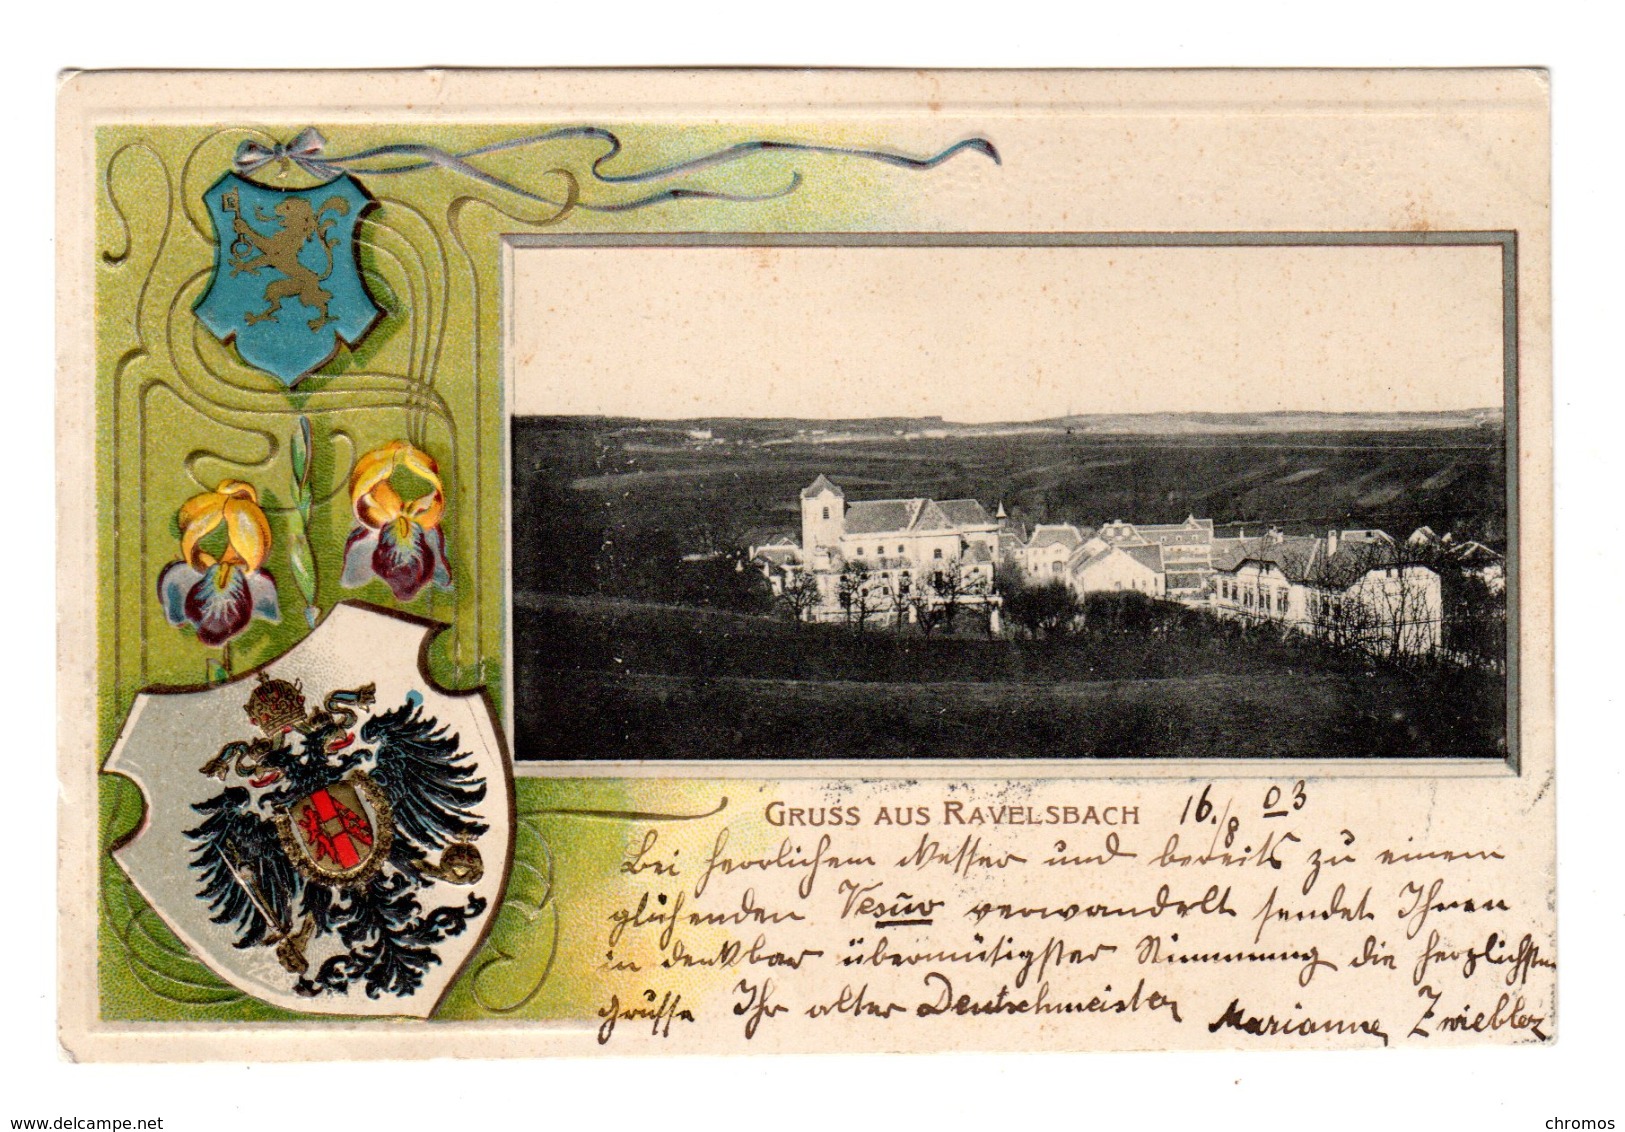 GRUSS AUS RAVELSBACH 16./8 03
Bei herrlichem Wetter und bereits zu einem
glühenden Vesuv verwandelt sendet Ihnen
in denkbar übermütigster Stimmung die herzlichsten
Grüsse Ihr alter Deutschmeister
Marianne Zwiebler
www.delcampe.net
chromos